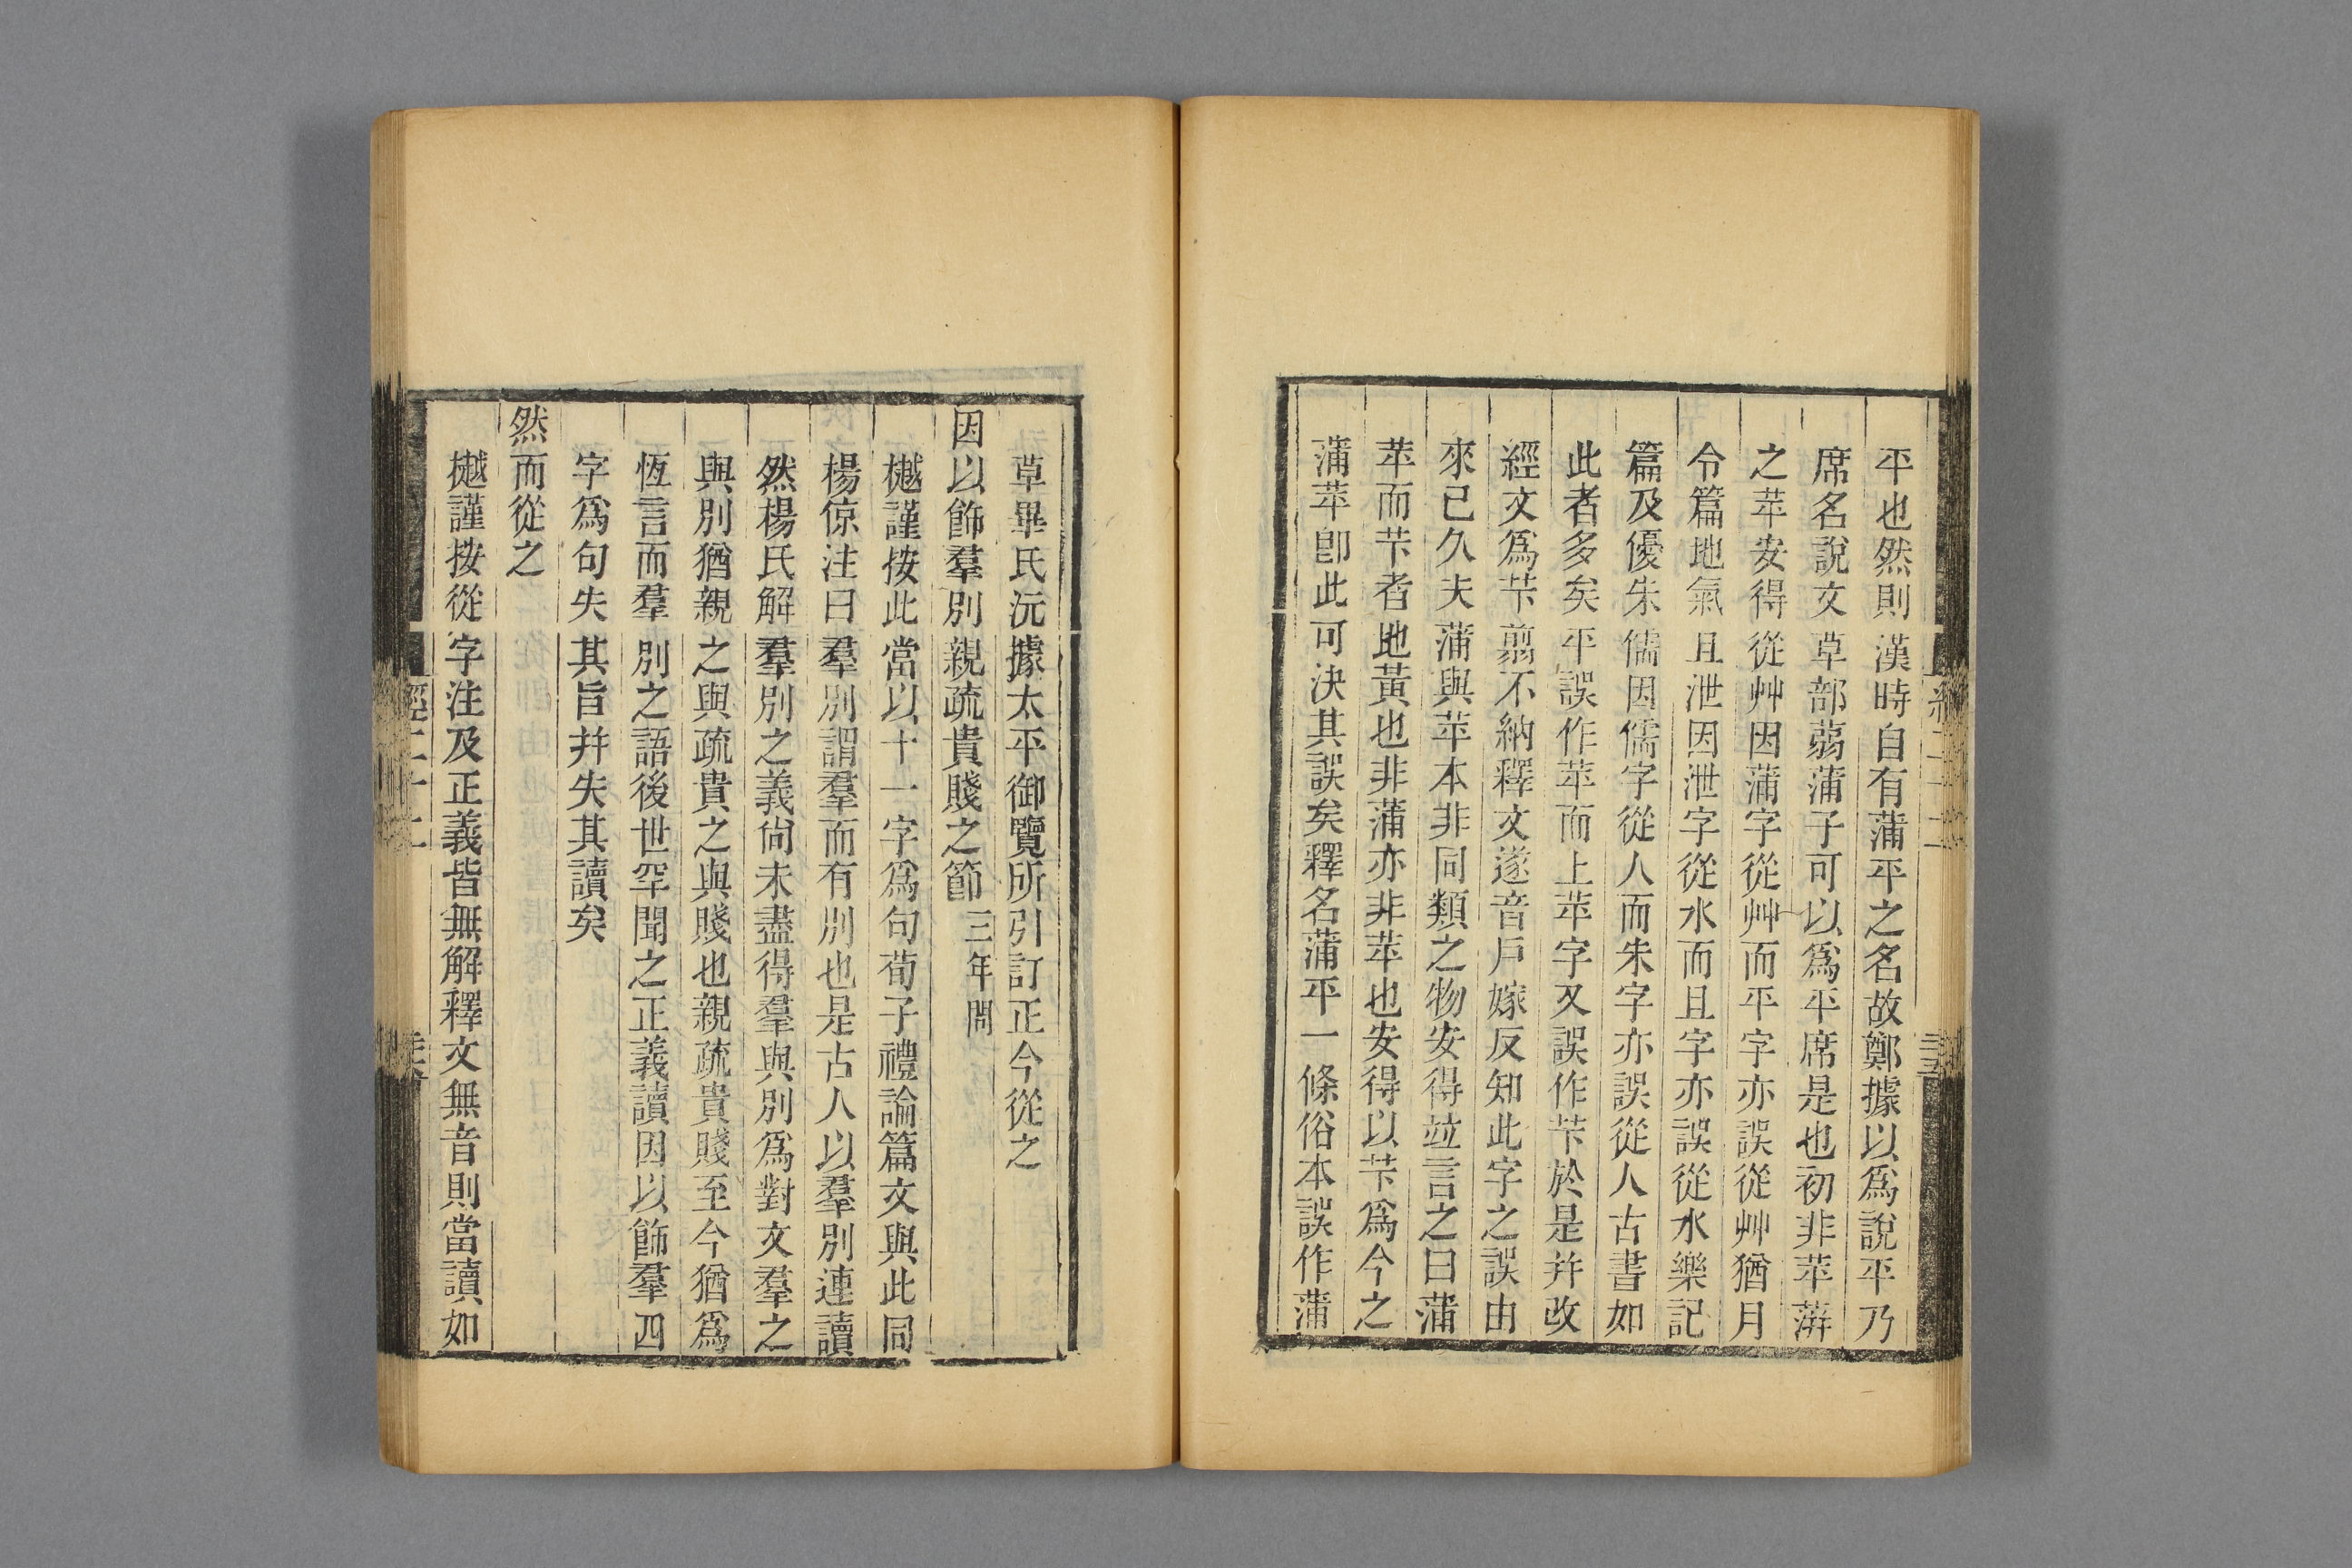 平也然則漢時自有蒲平之名故鄭據以爲說平乃
席名說文草部蒻蒲子可以爲平席是也初非苹蓱
之苹安得從艸因蒲字從艸而平字亦誤從艸猶月
令篇地氣且泄因泄字從水而且字亦誤從水樂記
篇及優朱儒因儒字從人而朱字亦誤從人古書如
此者多矣平誤作苹而上苹字又誤作芐於是并改
經文爲芐翦不納釋文遂音戶嫁反知此字之誤由
來已久夫蒲與苹本非同類之物安得竝言之曰蒲
苹而芐者地黃也非蒲亦非苹也安得以芐爲今之
蒲苹卽此可決其誤矣釋名蒲平一條俗本誤作蒲
草畢氏沅據太平御覽所引訂正今從之
因以飾羣別親疏貴賤之節三年問
樾謹按此當以十一字爲句荀子禮論篇文與此同
楊倞注曰羣別謂羣而有別也是古人以羣別連讀
然楊氏解羣別之義尙未盡得羣與別爲對文羣之
與別猶親之與疏貴之與賤也親疏貴賤至今猶爲
恆言而羣別之語後世罕聞之正義讀因以飾羣四
字爲句失其旨幷失其讀矣
然而從之
樾謹按從字注及正義皆無解釋文無音則當讀如
經二十二